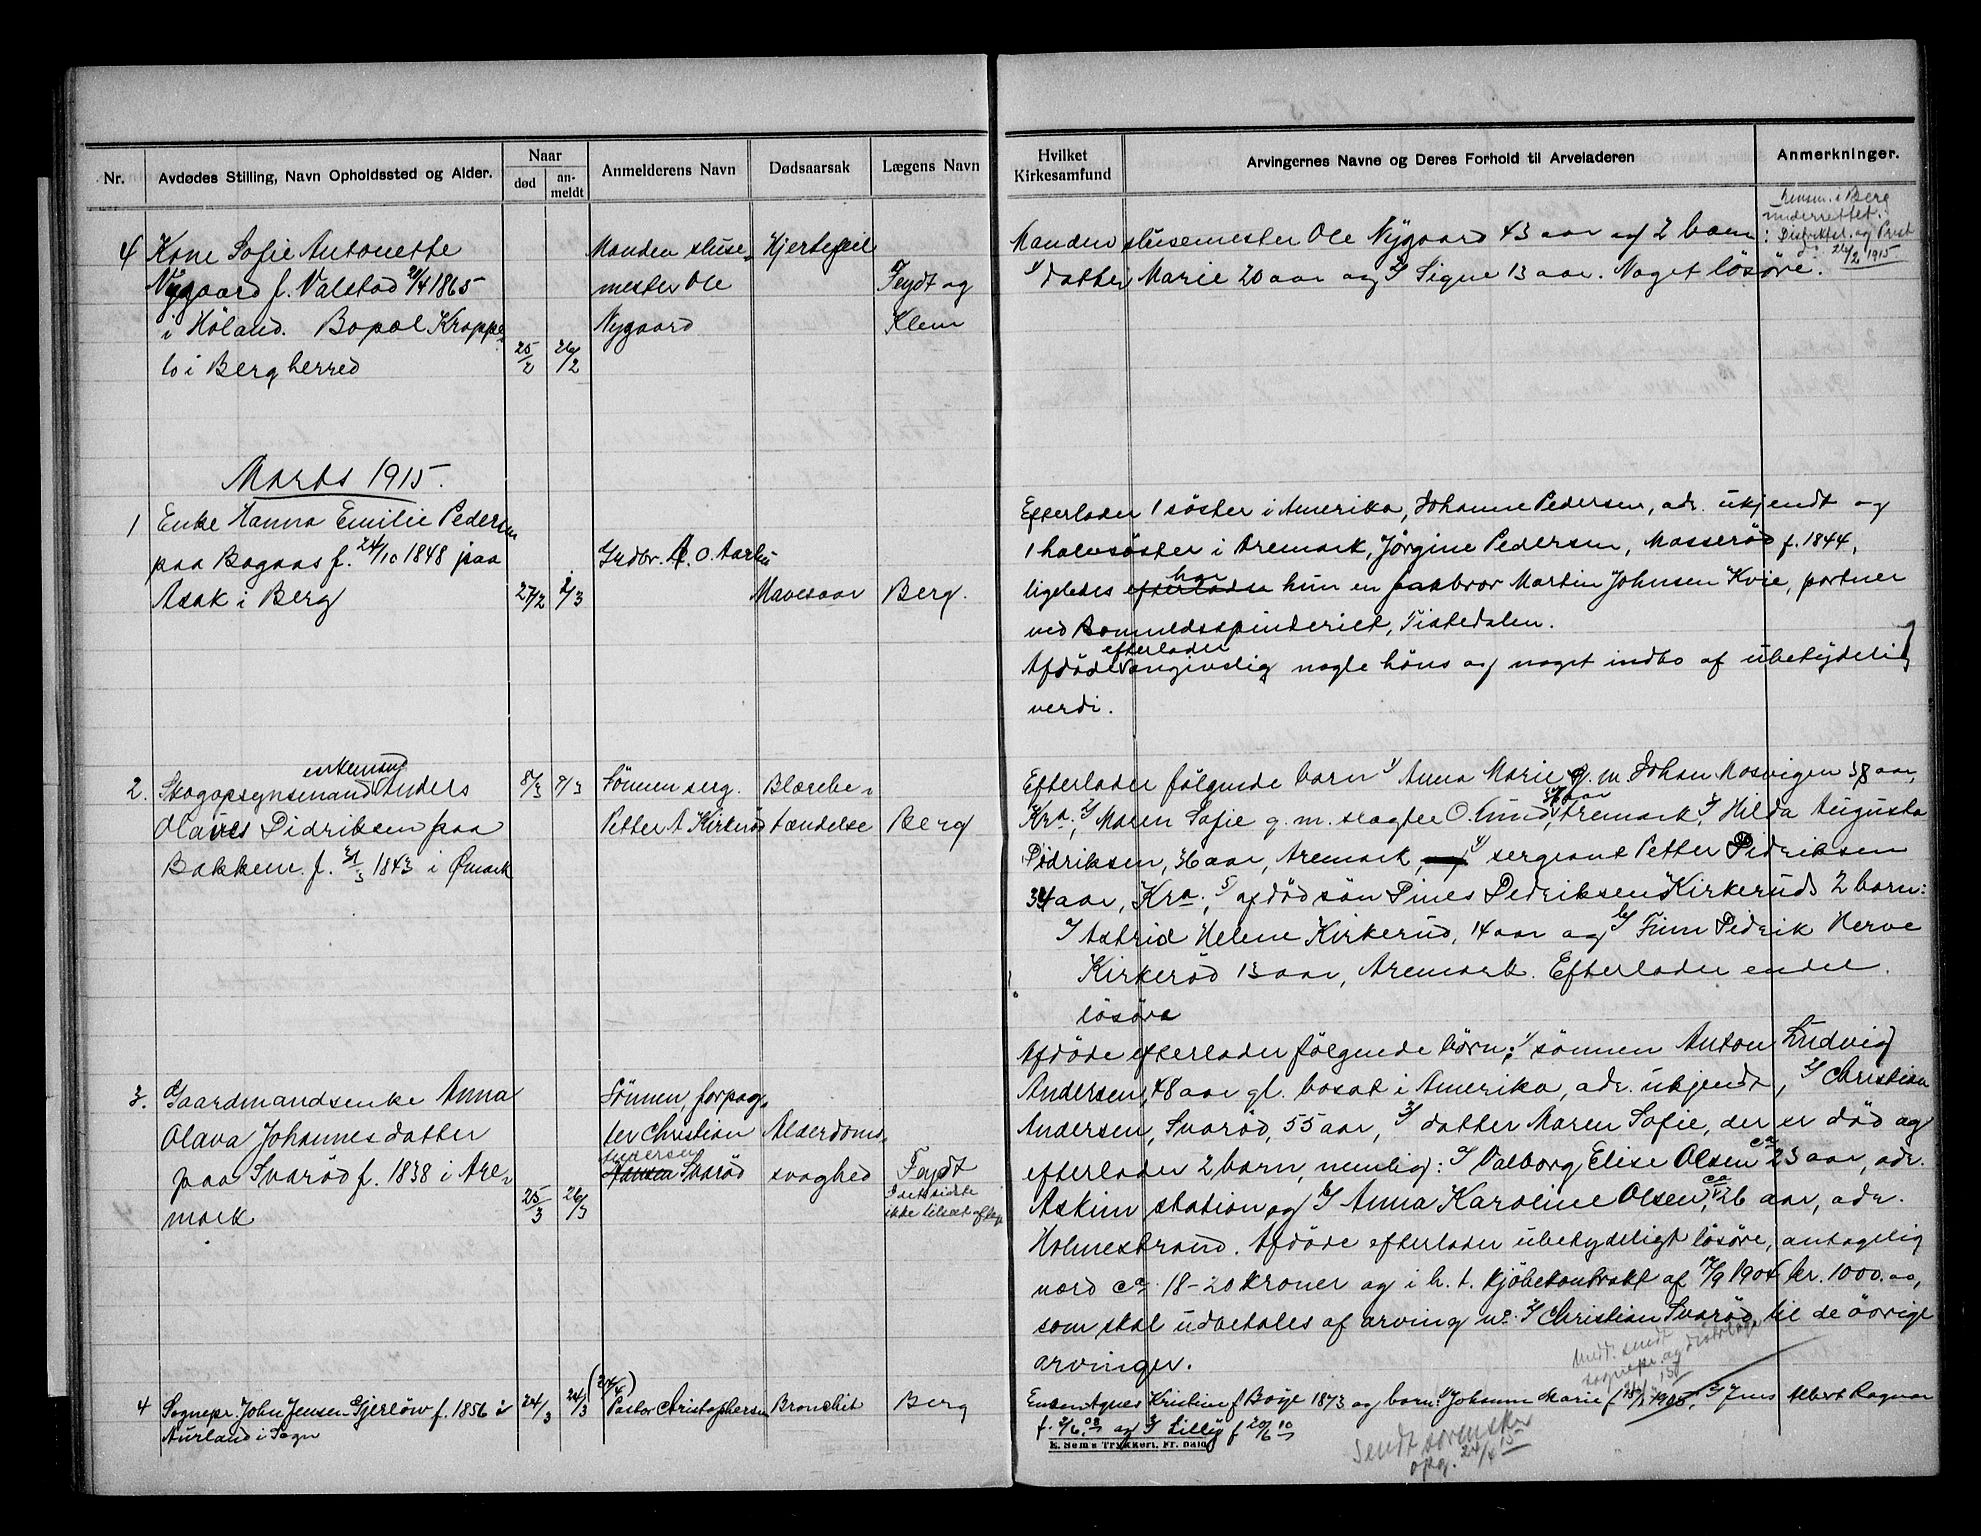 Nr.
Avdødes Stilling, Navn Opholdssted og Alder.
Naar
død
an-
meldt
Anmelderens Navn
Dødsaarsak
Lægens Navn
Hvilket
Kirkesamfund
Arvingernes Navne og Deres Forhold til Arveladeren
Anmerkninger.
4 Kone Sofie Antonette
Nygaard f. Valstad 20/4 1865
i Høland. Bopæl Krappe-
to i Berg herred
25/2
26/2
Manden sluse-
mester Ole
Nygaard
Hjertefeil
Feydt og
Klem
Manden slusemester Ole Nygaard 43 aar og 2 barn:
1/ datter Marie 20 aar og 2/ Signe 13 aar. Noget løsøre.
Lensm. i Berg
underrettet.
Distriktsl. og Prest
do 26/2 1915
Marts 1915.
1 Enke Hanna Emilie Pedersen
paa Bagaas f. 24/10 1848 paa
Asak i Berg
27/2
2/3
Grdbr. A. O. Aarbu
Mavesaar
Berg.
Efterlader 1 søster i Amerika, Johanne Pedersen, adr. ukjendt og
1 halvsøster i Aremark, Jørgine Pedersen, Masserød f. 1844,
ligeledes efterlader har hun en halvbror Martin Johnsen Kvie, portner
ved Bomuldsspinderiet, Tistedalen.
Afdøde efterlader angivelig nogle høns og noget indbo af ubetydelig
verdi.
2. Skogopsynsmand enkemand Anders
Olaves Didriksen paa
Bakken f. 31/3 1843 i Ømark
8/3
8/3
Sønnen serg.
Petter A Kirkerød
Blærebe-
tændelse
Berg
Efterlader følgende barn 1/ Anna Marie g. m. Johan Mosvigen 38 aar,
Kra., 2/ Maren Sofie g. m. slagter O. Lund, aar Aremark, 3/ Hilda Augusta
Didriksen, 36 aar, Aremark, 4/ sergeant Petter Didriksen
34 aar, Kra., 5/ afdød søn Dines Didriksen Kirkeruds 2 barn:
a/ Astrid Helene Kirkerud, 14 aar og b/ Finn Didrik Herve
Kirkerød 13 aar, Aremark. Efterlader endel
løsøre
3. Gaardmandsenke Anna
Olava Johannesdatter
paa Svarød f. 1838 i Are-
mark
25/3
26/3
Sønnen, forpag-
ter Christian
Andersen
Hansen Svarød
Alderdoms-
svaghed
Feydt
i det sidste
ikke tilset af læge
Afdøde efterlader følgende børn: 1/ sønnen Anton Ludvig
Andersen, 48 aar gl. bosat i Amerika, adr. ukjendt, 2/ Christian
Andersen, Svarød, 55 aar, 3/ datter Maren Sofie, der er død og
efterlader 2 barn, nemlig: a/ Valborg Elise Olsen ca 23 aar, adr.
Askim station og b/ Anna Karoline Olsen, ca 26 aar, adr.
Holmestrand. Afdøde efterlader ubetydeligt løsøre, antagelig
værd ca. 18-20 kroner og i h. t. kjøbekontrakt af 17/9 1904 kr. 1000.00,
som skal udbetales af arving no. 2/ Christian Svarød til de øvrige
arvinger.
Medd. sendt
sognepr. og distrlæge
4 Sognepr. John Jensen Gjerløw f. 1856 i
Aurland i Sogn
24/3
24/3
(24/4)
Pastor Christophersen
Bronchit
Berg
Enken Agnes Kristine f Boye 1873 og barn: 1/ Johanne Marie f 1905, 2/ Jens Albert Ragnar
f. 3/6 08 og 3/ Lilly f 20/6 10
E. Sem's Trykkeri, Fr.hald
Sendt sorensk.
opg. 24/4 15